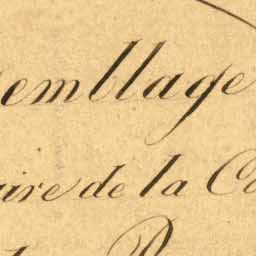 emblage
aire de la Co